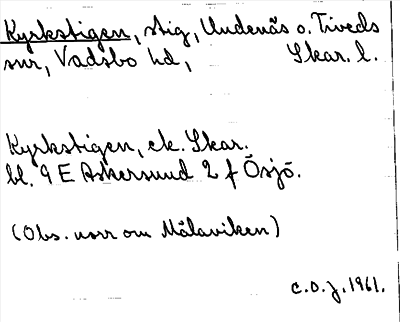 Kyrkstigen, stig, Undenäs o. Tiveds
snr, Vadsbo hd, Skar. l.
Kyrkstigen, ek. Skar.
bl. 9 E Askersund 2 f Ösjö.
(Obs. norr om Målaviken)
C.O.J. 1961.